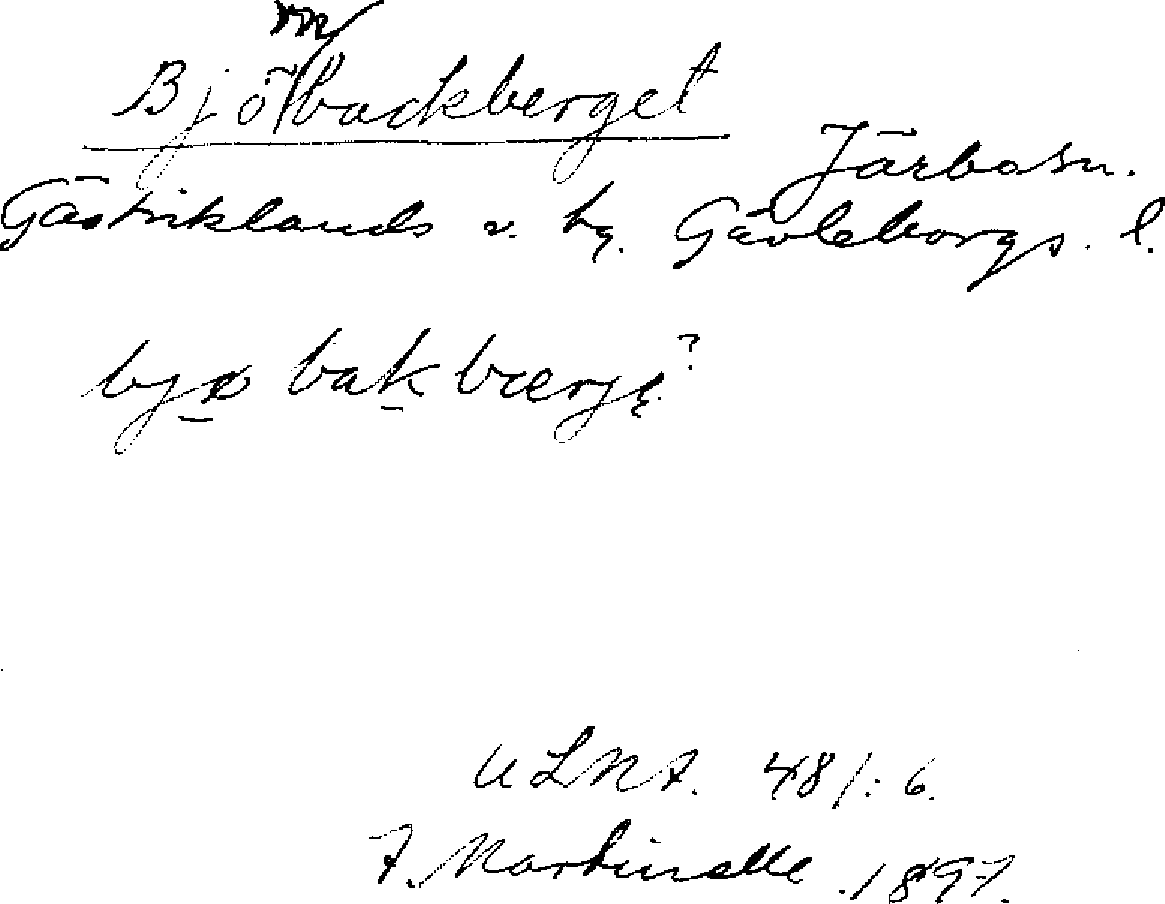 Björnbackberget
Järbo sn.
Gästriklands v. hg. Gävleborgs l.
bjø bak bærję?
ULMA. 481:6.
F. Martinelle. 1897.